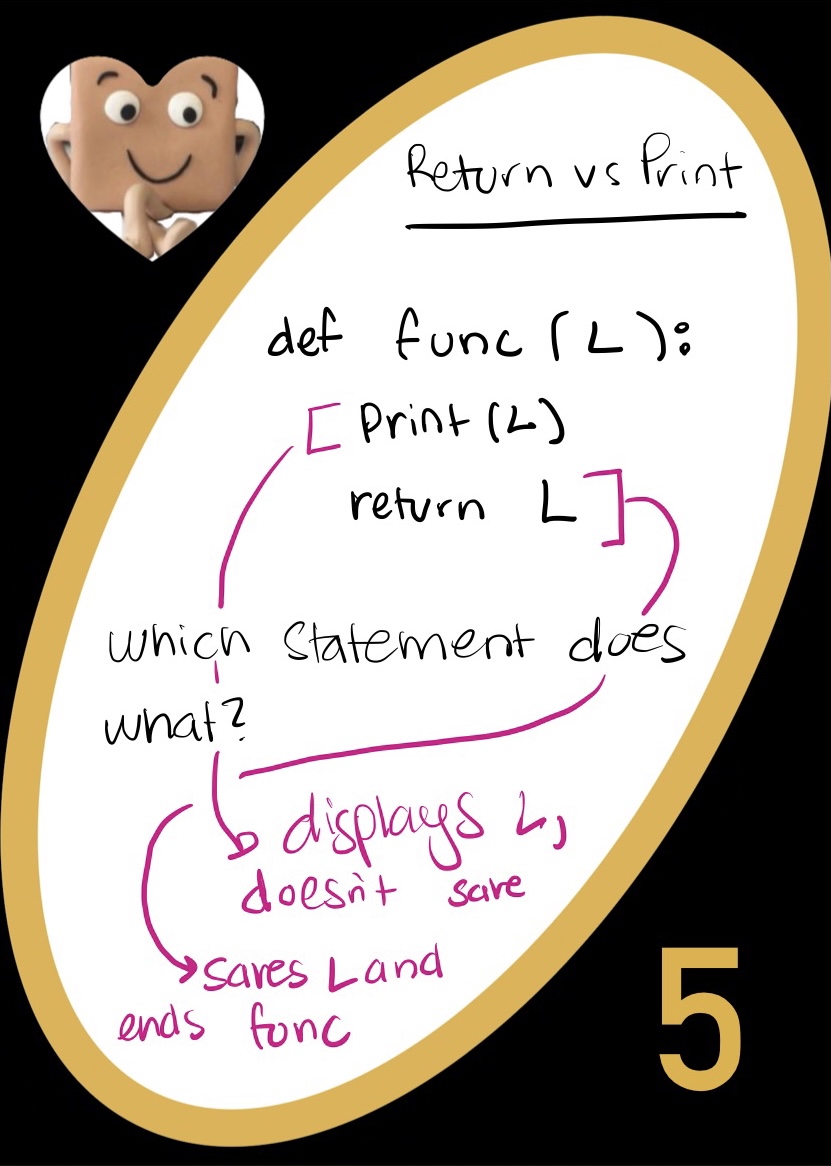 Return vs Print
def func (L):
Print (L)
return L
which statement does
what?
displays L,
doesn't save
saves L and
ends func
5